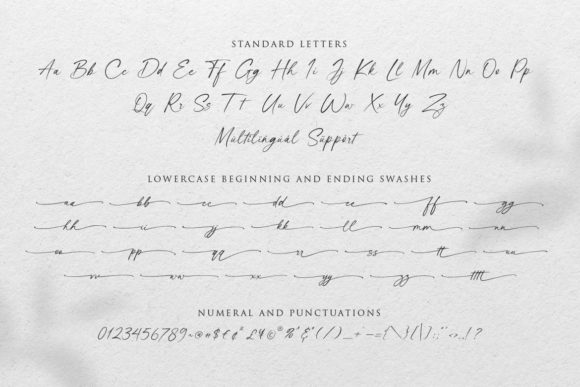 STANDARD LETTERS
Aa Bb Cc Dd Ee Ff Gg Hh Ii Jj Kk Ll Mm Nn Oo Pp
Qq Rr Ss Tt Uu Vv Ww Xx Yy Zz
Múltilingúál Süppört
LOWERCASE BEGINNING AND ENDING SWASHES
aa bb cc dd ee ff gg
hh ii jj kk ll mm nn
oo pp qq rr ss tt uu
vv ww xx yy zz tttt
NUMERAL AND PUNCTUATIONS
0123456789